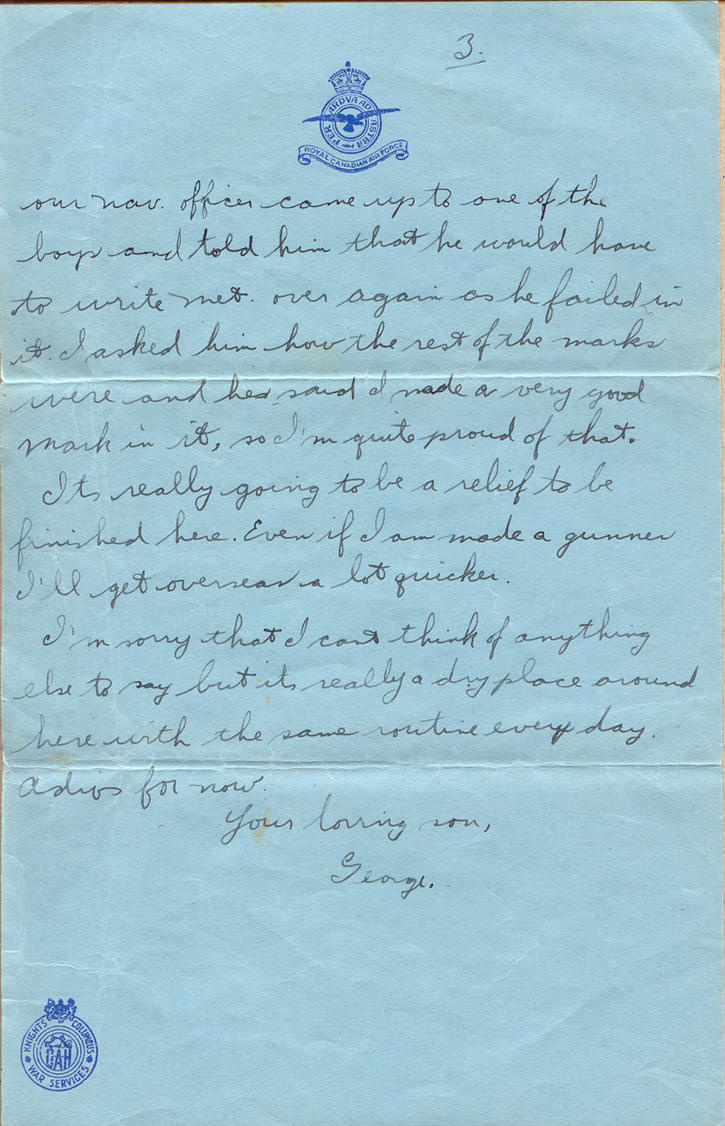 3.
PER ARDVA AD ASTRA
ROYAL CANADIAN AIR FORCE
our nav. officer came up to one of the
boys and told him that he would have
to write met. over again as he failed in
it. I asked him how the rest of the marks
were and he said I made a very good
mark in it, so I'm quite proud of that.
Its really going to be a relief to be
finished here. Even if I am made a gunner
I'll get overseas a lot quicker.
I'm sorry that I cant think of anything
else to say but its really a dry place around
here with the same routine every day.
Adios for now.
Your loving son,
George.
KNIGHTS COLUMBUS
CAH
WAR SERVICES